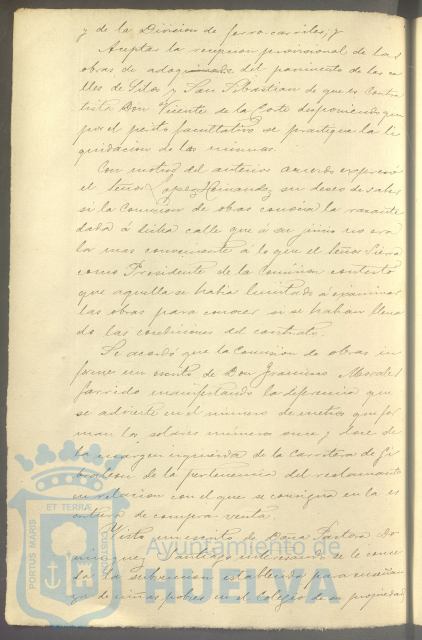 y de la Division de ferro-carriles, y
Aceptar la recepcion provisional de las
obras de adoquinado del pavimento de las ca
lles de Silos y San Sebastian de que es contra
tista Don Vicente de la Corte disponiendo que
por el perito facultativo se practique la li
quidacion de las mismas.
Con motivo del anterior acuerdo expresó
el señor Lopez Hernandez su deseo de saber
si la Comision de obras conocia la rasante
dada á dicha calle que á su juicio no era
la mas conveniente á lo que el señor
como Presidente de la Comision contestó
que aquella se habia limitado á examinar
las obras para conocer si se habian llena
do las condiciones del contrato.
Se acordó que la Comision de obras in
forme un escrito de Don Francisco Morales
Garrido manifestando la diferencia que
se advierte en el número de metros que for
man los solares números once y doce de
la margen izquierda de la Carretera de Gi
braleon de la pertenencia del reclamante
en relacion con el que se consigna en la es
critura de compra-venta.
Visto un escrito de Doña Pastora Do
minguez interesando se le conce
da la subvencion establecida para enseñan
za de niñas pobres en el Colegio de su propiedad
PORTUS MARIS
ET TERRÆ
CUSTODIA
Ayuntamiento de
HUELVA